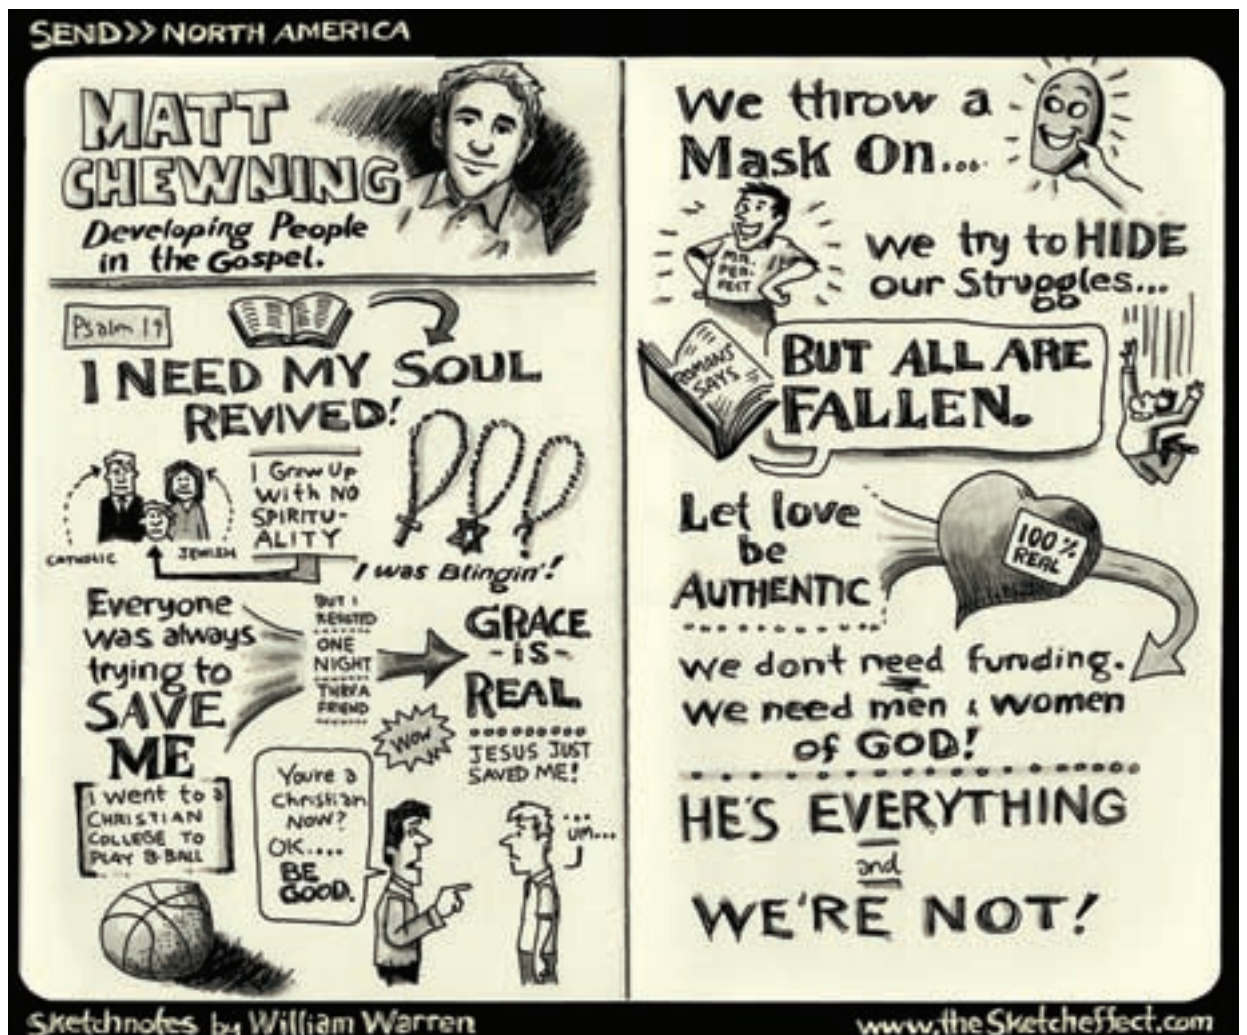 SEND>> NORTH AMERICA
MATT
CHEWNING
Developing People
in the Gospel.
Psalm 19
I NEED MY SOUL
REVIVED!
CATHOLIC
JEWISH
I Grew Up
with NO
SPIRITU-
ALITY
I was Blingin'!
Everyone
was always
trying to
SAVE
ME
BUT I
RESISTED
ONE
NIGHT
THRU A
FRIEND
GRACE
-is-
REAL
WOW
JESUS JUST
SAVED ME!
I went to a
CHRISTIAN
COLLEGE TO
PLAY B-BALL
You're a
Christian
NOW?
OK....
BE
GOOD.
...
UM...
We throw a
Mask On...
MR.
PER-
FECT
we try to HIDE
our Struggles...
ROMANS
SAYS
BUT ALL ARE
FALLEN.
Let love
be
AUTHENTIC
100%
REAL
we dont need funding.
We need men & women
of GOD!
HE'S EVERYTHING
and
WE'RE NOT!
Sketchnotes by William Warren
www.theSketcheffect.com